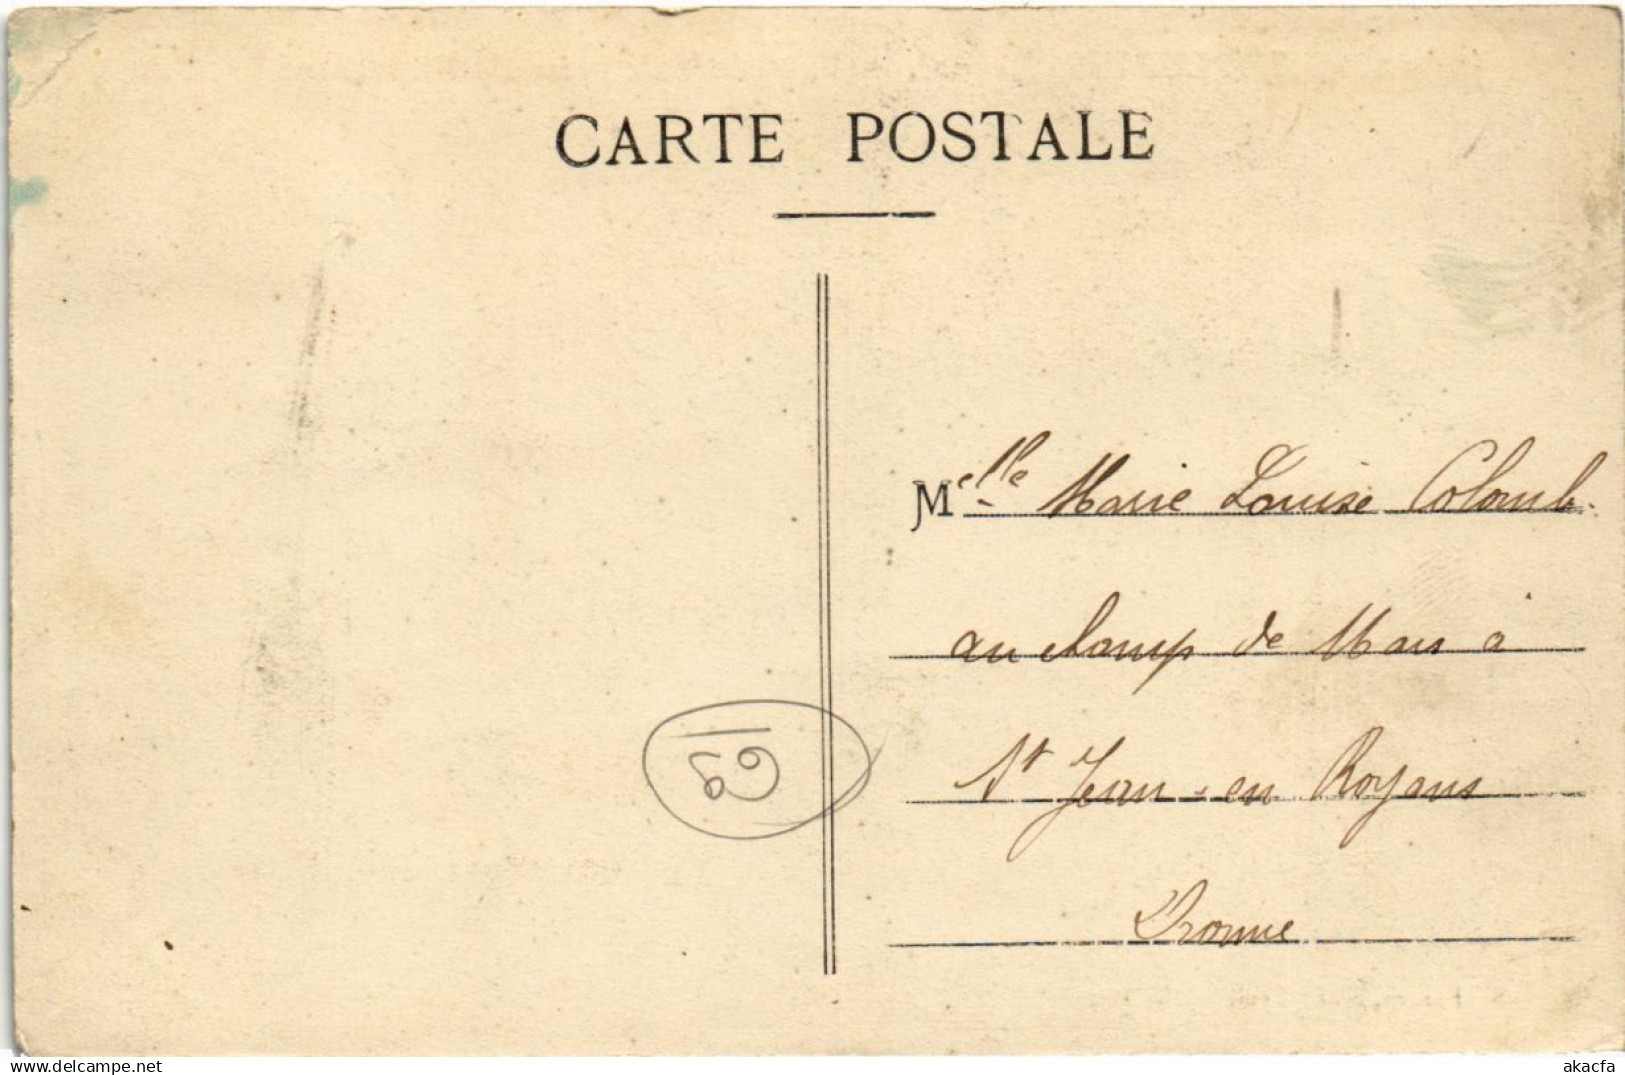 CARTE POSTALE
Melle Marie Louise Colomb.
au champ de Mars à
St Jean-en Royans
Drome
69
www.delcampe.net
akacfa